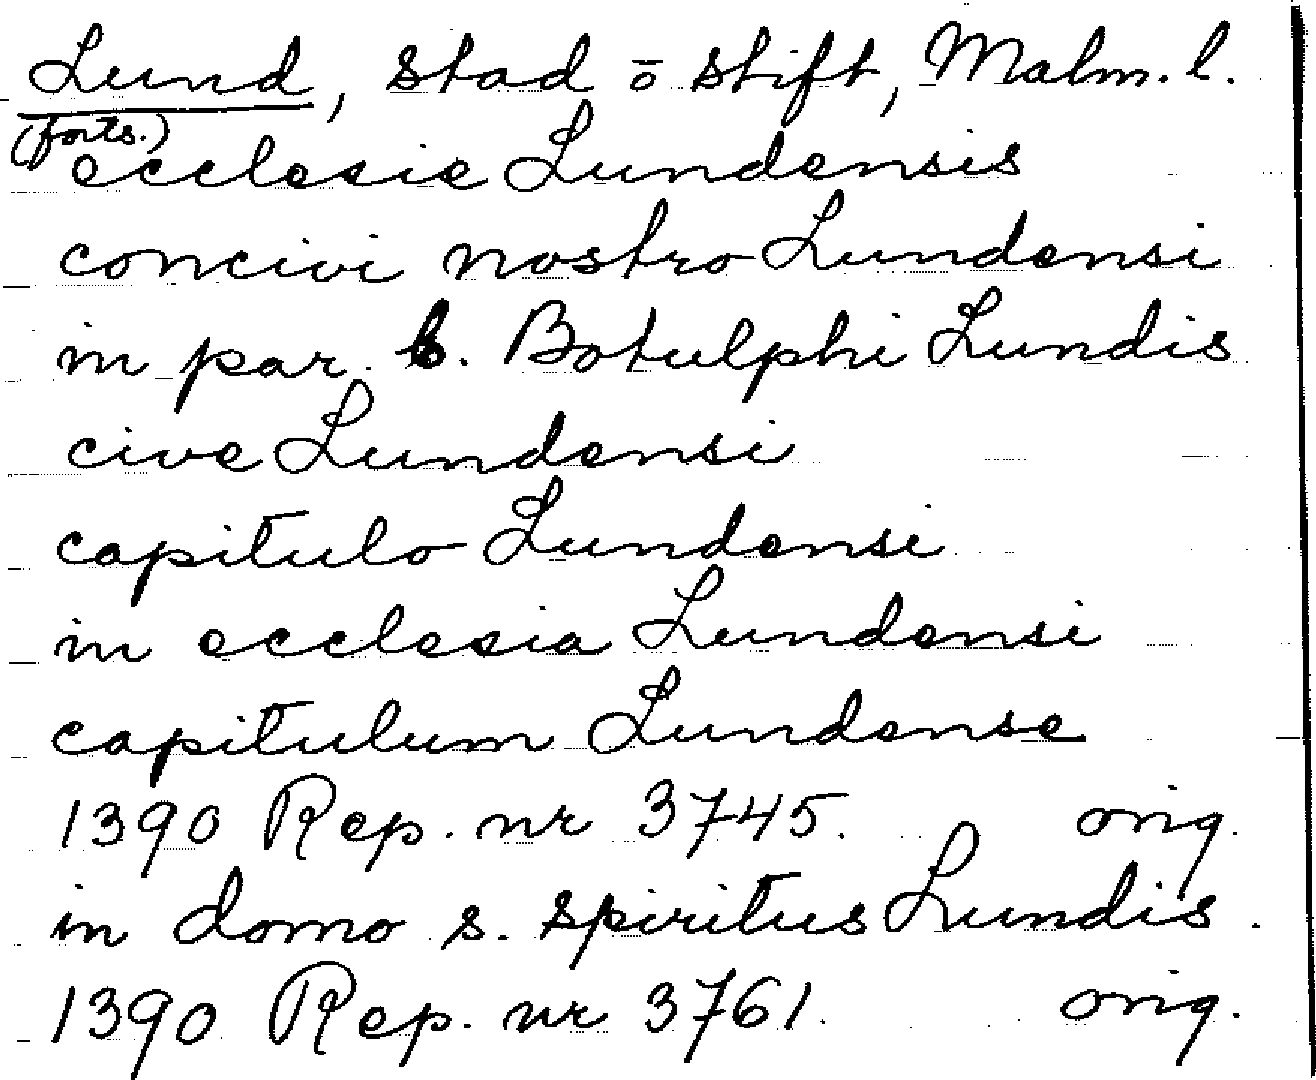 Lund, stad ō stift, Malm. l.
(forts.)
ecclesie Lundensis
concivi nostro Lundensi
in par. b. Botulphi Lundis
cive Lundensi
capitulo Lundensi
in ecclesia Lundensi
capitulum Lundense
1390 Rep. nr 3745. orig.
in domo s. spiritus Lundis.
1390 Rep. nr 3761. orig.